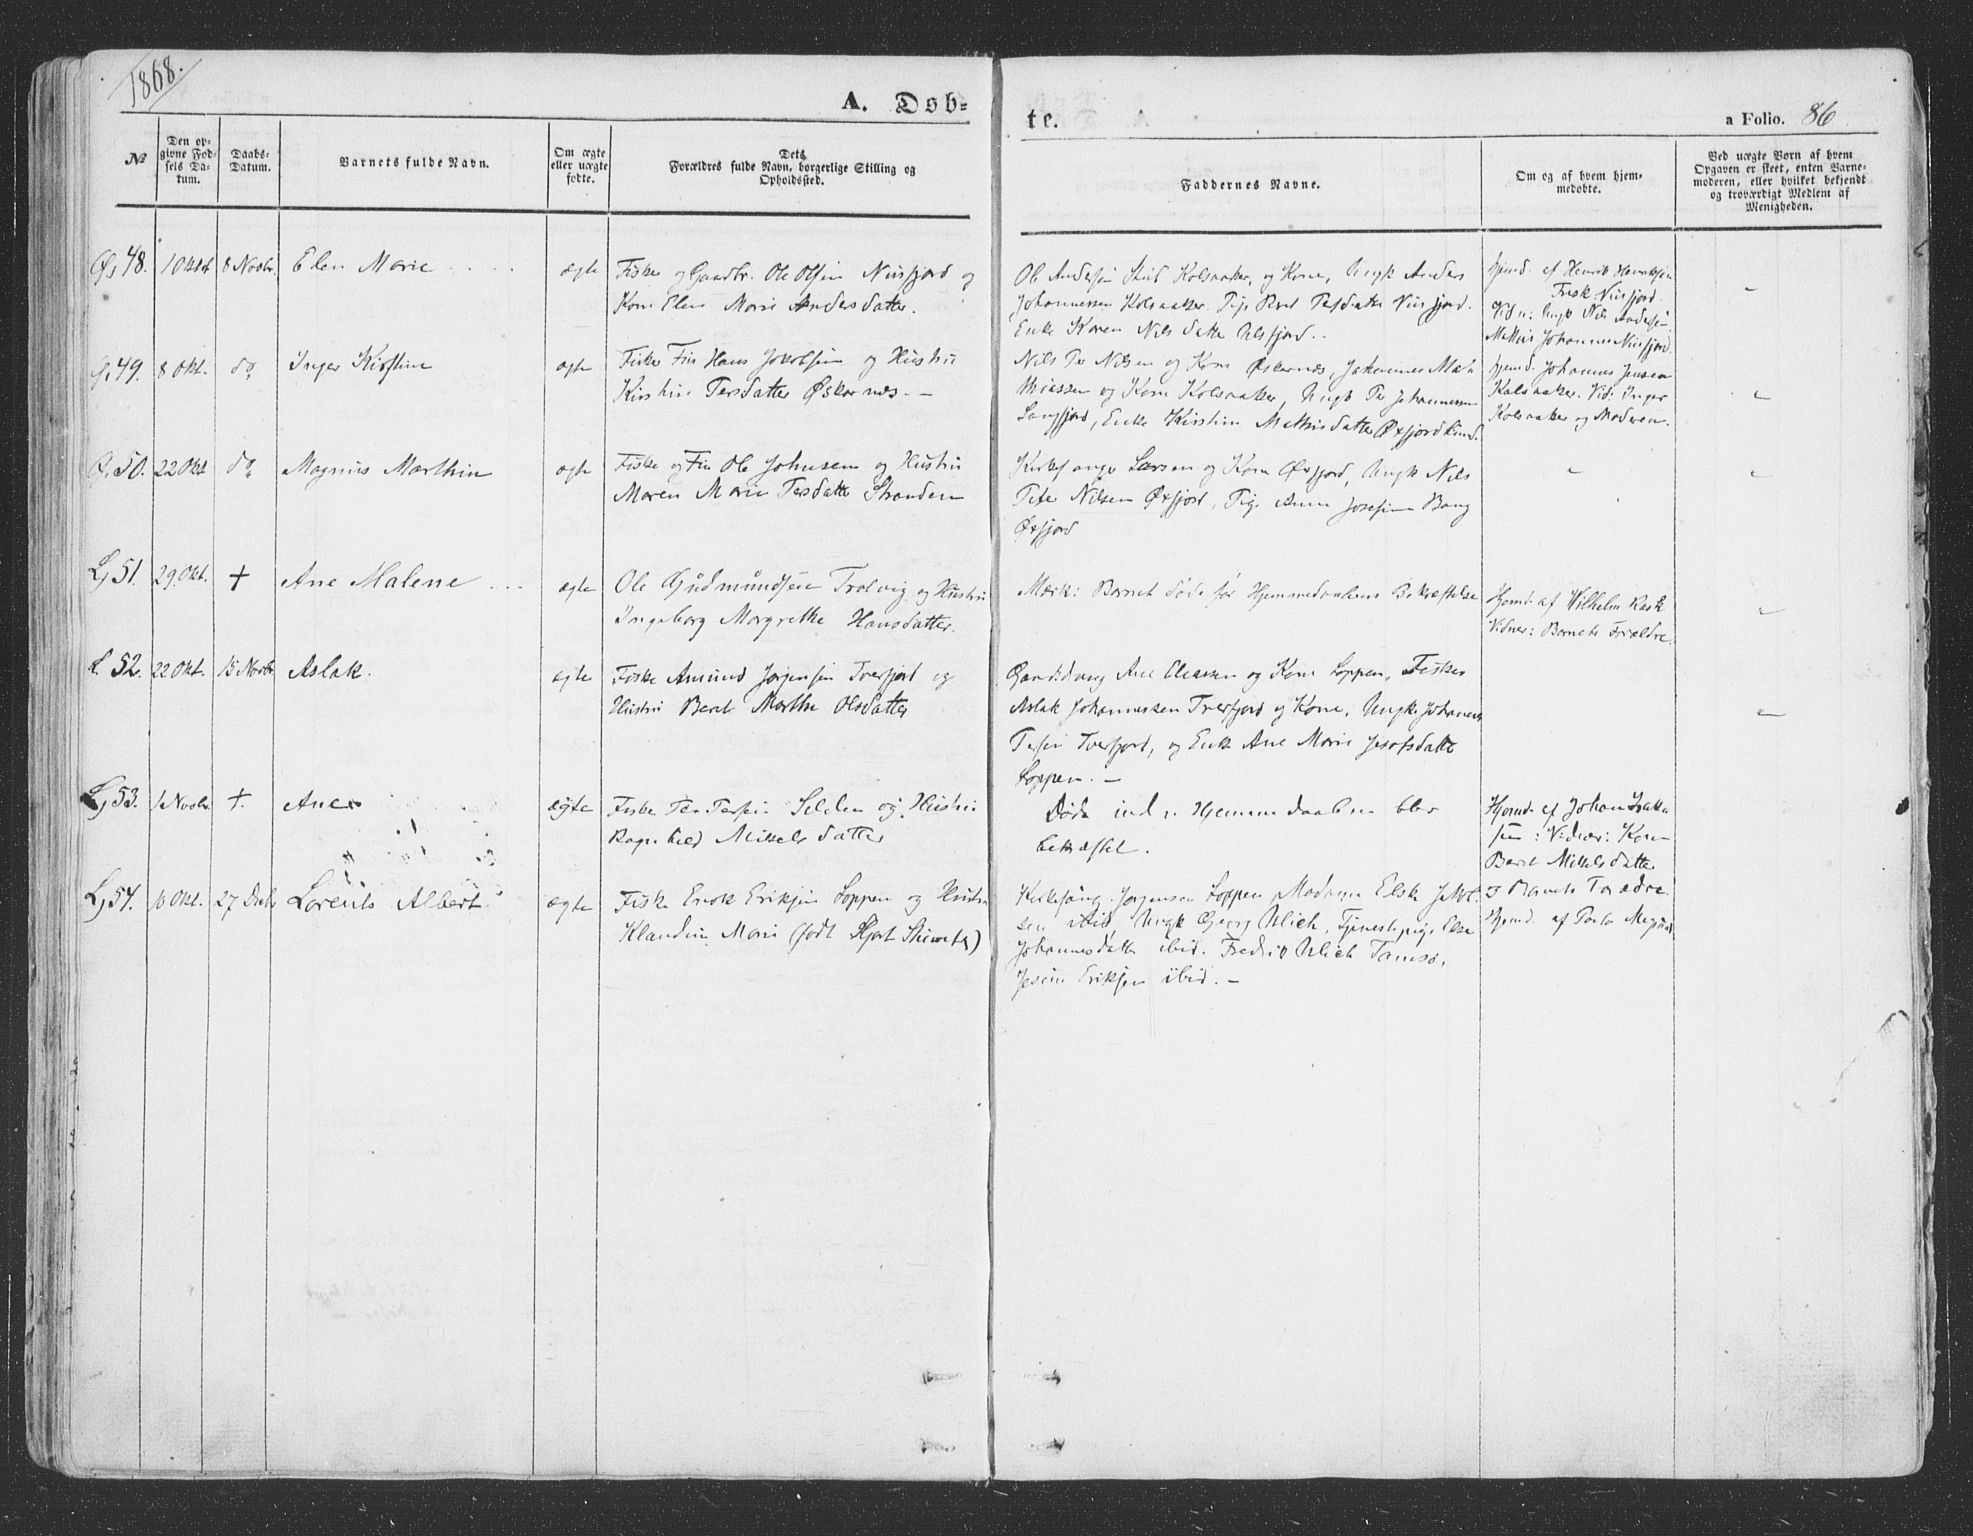 1868.
A. Døb-
te.
a Folio. 86
No
Den op-
givne Fød-
sels Da-
tum.
Daabs-
Datum.
Barnets fulde Navn.
Om ægte
eller uægte
fødte.
Dets
Forældres fulde Navn, borgerlige Stilling og
Opholdssted.
Faddernes Navne.
Om og af hvem hjem-
medøbte.
Ved uægte Børn af hvem
Opgaven er skeet, enten Barne-
moderen, eller hvilket bekjendt
og troværdigt Medlem af
Menigheden.
48. 8 Novbr. Elen Marie ægte
Fisker og Gaardbr. Ole Olsen Nuvsfjord og
Kone Elen Marie Andersdatter.
Ole Andersen Kolsaaker, og Kone, Ungk Anders
Johannessen Kolsaaker. Pige Beret Persdatter
Enke Karen Nilsdatter Ulsfjord.
Hjemd. af Henrik Henriksen
Vidn: Ungk Nils Andersen
Mathis Johannes
49. 8 Okt. do Inger Kirstine ægte
Fisker Fin Hans Jakobsen og Hustru
Kirstine Persdatter Øskarnes. -
Nils Per Nilsen og Kone Øskarnes, Johannes Mat-
thiassen og Kone Kolsaaker, Ungk Per Johannessen
Langfjord, Enke Kirstine Mathisdatter Øxfjordbund.
hjemd. Johannes Jensen
Kolsaaker. Vid: Inger
Kolsaaker og Moderen.
50. 22 Okt do Magnus Marthin ægte
Fisker og Fin Ole Johnsen og Hustru
Maren Marie Persdatter Stranden
Larsen og Kone Øxfjord, Ungk Nils
Peter Nilsen Øxfjord, Pige Anne Josefine Bang
Øxfjord
L, 51. 29. Okt. + Ane Malene ægte
Ole Gudmundsen Trolvig og Hustru
Ingeborg Margrethe Hansdatter.
Mærk: Barnet døde før Hjemmedaabens Bekræftelse
Hjemd. af Wilhelm Rask
Vidner: Barnets Forældre.
L 52. 22 Okt. 15 Novbr. Aslak. ægte
Fisker Amund Jørgensen Tverfjord og
Hustru Berit Marthe Olsdatter
Ane Eliassen og Kone Loppen, Fisker
Aslak Johannessen Tverfjord og Kone, Ungk. Johannes
Persen Tverfjord, og Enke Ane Marie Josefsdatter
Loppen. -
L, 53. 1 Novbr +. Ane ægte
Fisker Per Persen Selden og Hustru
Ragnhild Mikkelsdatter
Døde inden Hjemmedaaben blev
bekræftet.
Hjemd. af Johan Isak-
sen: Vidner: Kone
Berit Mikkelsdatter
og Barnets Forædre.
L, 54. 10 Okt. 27 Decbr Lorents Albert ægte
Fisker Enok Eriksen Loppen og Hustru
Klaudine Marie (født Hjort)
Kirkesang. Jørgensen Loppen, Madame Elske Jakob-
sen ibid, Ungk Georg Ulich, Tjenestepige Else
Johannesdatter ibid. Fredrik Ulich Tamsø.
Jesine Eriksen ibid. -
Hjemd. af